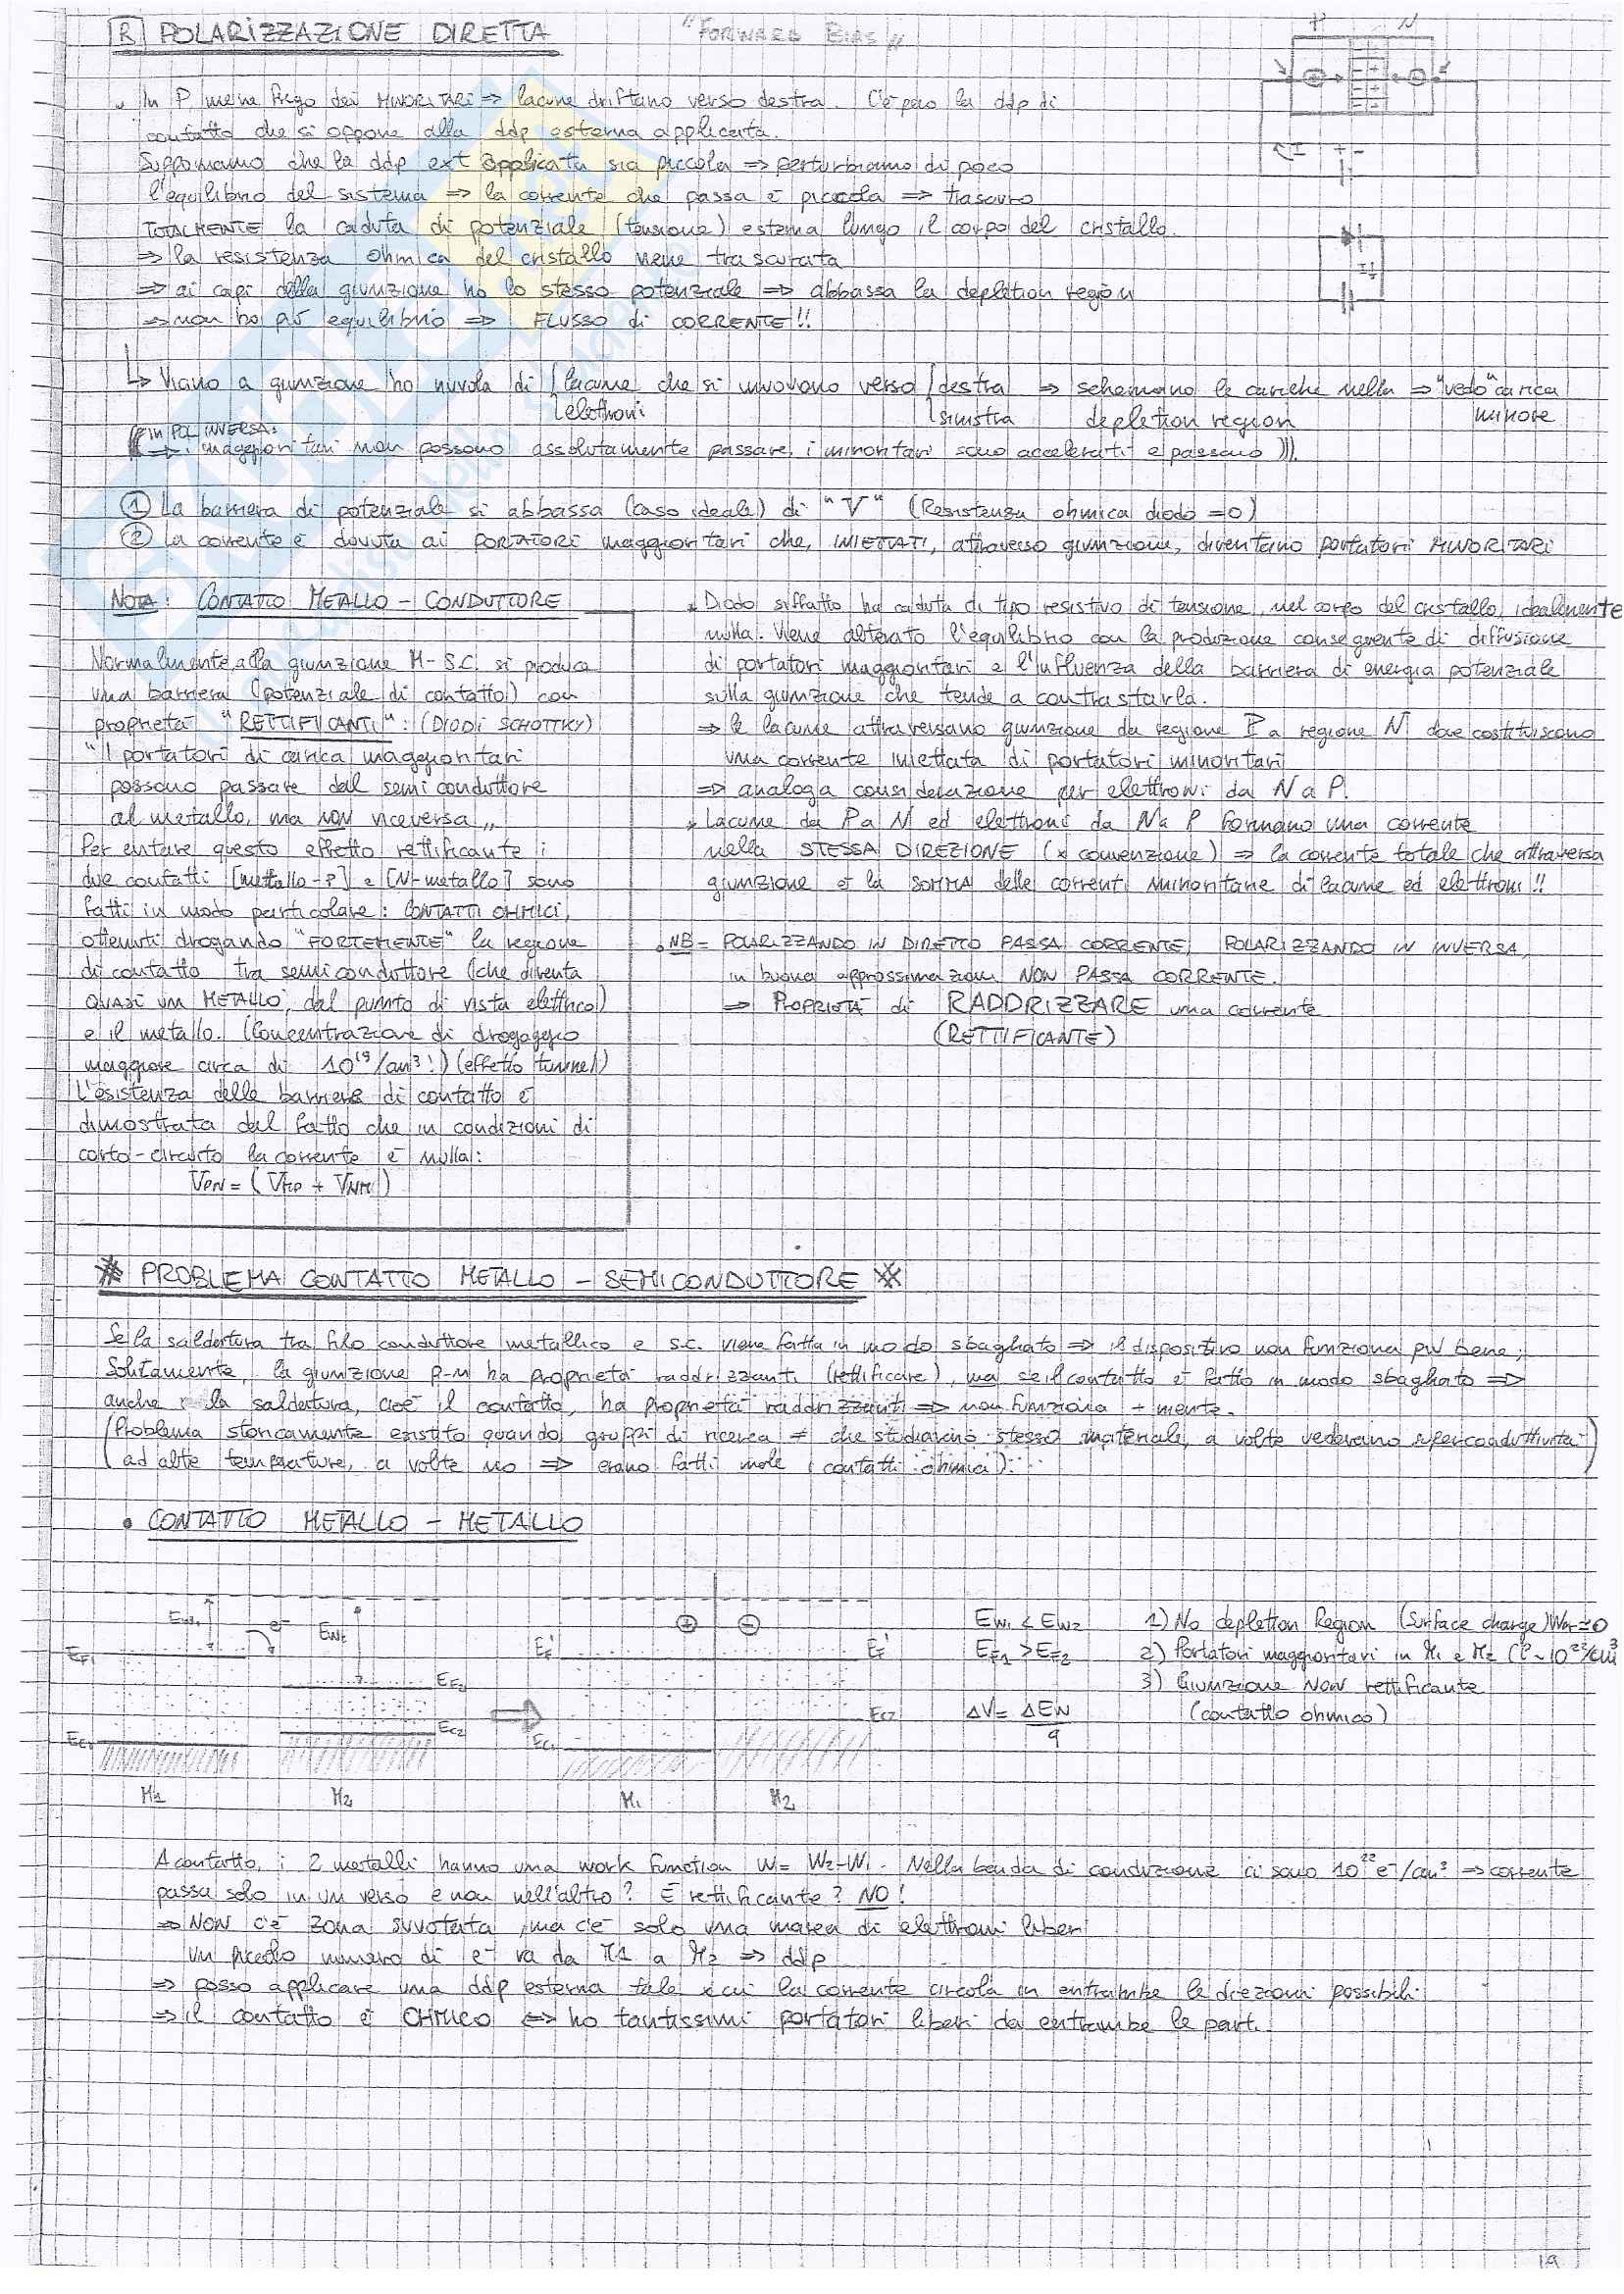 R POLARIZZAZIONE DIRETTA "FORWARD BIAS"
P N
In P me ne frego dei MINORITARI => lacune driftano verso destra. C'è però la ddp di
contatto che si oppone alla ddp esterna applicata.
Supponiamo che la ddp ext applicata sia piccola => perturbiamo di poco
l'equilibrio del sistema => la corrente che passa è piccola => trascuro
TOTALMENTE la caduta di potenziale (tensione) esterna lungo il corpo del cristallo.
=> la resistenza ohmica del cristallo viene trascurata
=> ai capi della giunzione ho lo stesso potenziale => abbassa la depletion region
=> non ho più equilibrio => FLUSSO di CORRENTE!!
I + -
↳ Vicino a giunzione ho nuvola di lacune che si muovono verso destra => schermano le cariche nella => "vedo" carica
elettroni sinistra depletion region minore
(((in POL INVERSA:
=> i maggioritari non possono assolutamente passare, i minoritari sono accelerati e passano ))).
① La barriera di potenziale si abbassa (caso ideale) di "V" (Resistenza ohmica diodo = 0)
② La corrente è dovuta ai PORTATORI maggioritari che, INIETTATI, attraverso giunzione, diventano portatori MINORITARI
NOTA: CONTATTO METALLO - CONDUTTORE
Normalmente alla giunzione M-S.C. si produce
una barriera (potenziale di contatto) con
proprietà "RETTIFICANTI": (DIODI SCHOTTKY)
"I portatori di carica maggioritari
possono passare dal semiconduttore
al metallo, ma NON viceversa"
Per evitare questo effetto rettificante i
due contatti [metallo-P] e [N-metallo] sono
fatti in modo particolare: CONTATTI OHMICI,
ottenuti drogando "FORTEMENTE" la regione
di contatto tra semiconduttore (che diventa
QUASI UN METALLO, dal punto di vista elettrico)
e il metallo. (Concentrazione di drogaggio
maggiore circa di 10^19/cm³!) (effetto tunnel)
L'esistenza delle barriere di contatto è
dimostrata dal fatto che in condizioni di
corto-circuito la corrente è nulla:
VPN = (VMP + VNM)
Diodo siffatto ha caduta di tipo resistivo di tensione, nel corpo del cristallo, idealmente
nulla. Viene alterato l'equilibrio con la produzione conseguente di diffusione
di portatori maggioritari e l'influenza della barriera di energia potenziale
sulla giunzione che tende a contrastarla.
=> le lacune attraversano giunzione da regione P a regione N dove costituiscono
una corrente iniettata di portatori minoritari
=> analoga considerazione per elettroni da N a P.
Lacune da P a N ed elettroni da N a P formano una corrente
nella STESSA DIREZIONE (x convenzione) => la corrente totale che attraversa
giunzione è la SOMMA delle correnti minoritarie di lacune ed elettroni!!
NB = POLARIZZANDO IN DIRETTO PASSA CORRENTE, POLARIZZANDO IN INVERSA,
in buona approssimazioni NON PASSA CORRENTE.
=> PROPRIETÀ di RADDRIZZARE una corrente
(RETTIFICANTE)
※ PROBLEMA CONTATTO METALLO - SEMICONDUTTORE ※
Se la saldatura tra filo conduttore metallico e s.c. viene fatta in modo sbagliato => il dispositivo non funziona più bene;
Solitamente, la giunzione p-n ha proprietà raddrizzanti (rettificare), ma se il contatto è fatto in modo sbagliato =>
anche la saldatura, cioè il contatto, ha proprietà raddrizzanti => non funziona + niente.
(Problema storicamente esistito quando gruppi di ricerca ≠ che studiavano stesso materiale, a volte vedevano superconduttività
ad alte temperature, a volte no => erano fatti male i contatti ohmici).
• CONTATTO METALLO - METALLO
EW1 e- EW2 EF1 EF2 EC1 EC2 M1 M2
⊕ ⊖ EF' EF' EC1 EC2 M1 M2
EW1 < EW2
EF1 > EF2
ΔV = ΔEW / q
1) No depletion Region (Surface charge)
2) Portatori maggioritari in M1 e M2 (e- ~10^22/cm³
3) Giunzione NON rettificante
(contatto ohmico)
A contatto, i 2 metalli hanno una work function W = W2-W1. Nella banda di conduzione ci sono 10^22 e-/cm³ => corrente
passa solo in un verso e non nell'altro? È rettificante? NO!
=> NON c'è zona svuotata, ma c'è solo una marea di elettroni liberi
Un piccolo numero di e- va da M1 a M2 => ddp
=> posso applicare una ddp esterna tale x cui la corrente circola in entrambe le direzioni possibili
=> il contatto è OHMICO <=> ho tantissimi portatori liberi da entrambe le parti.
19